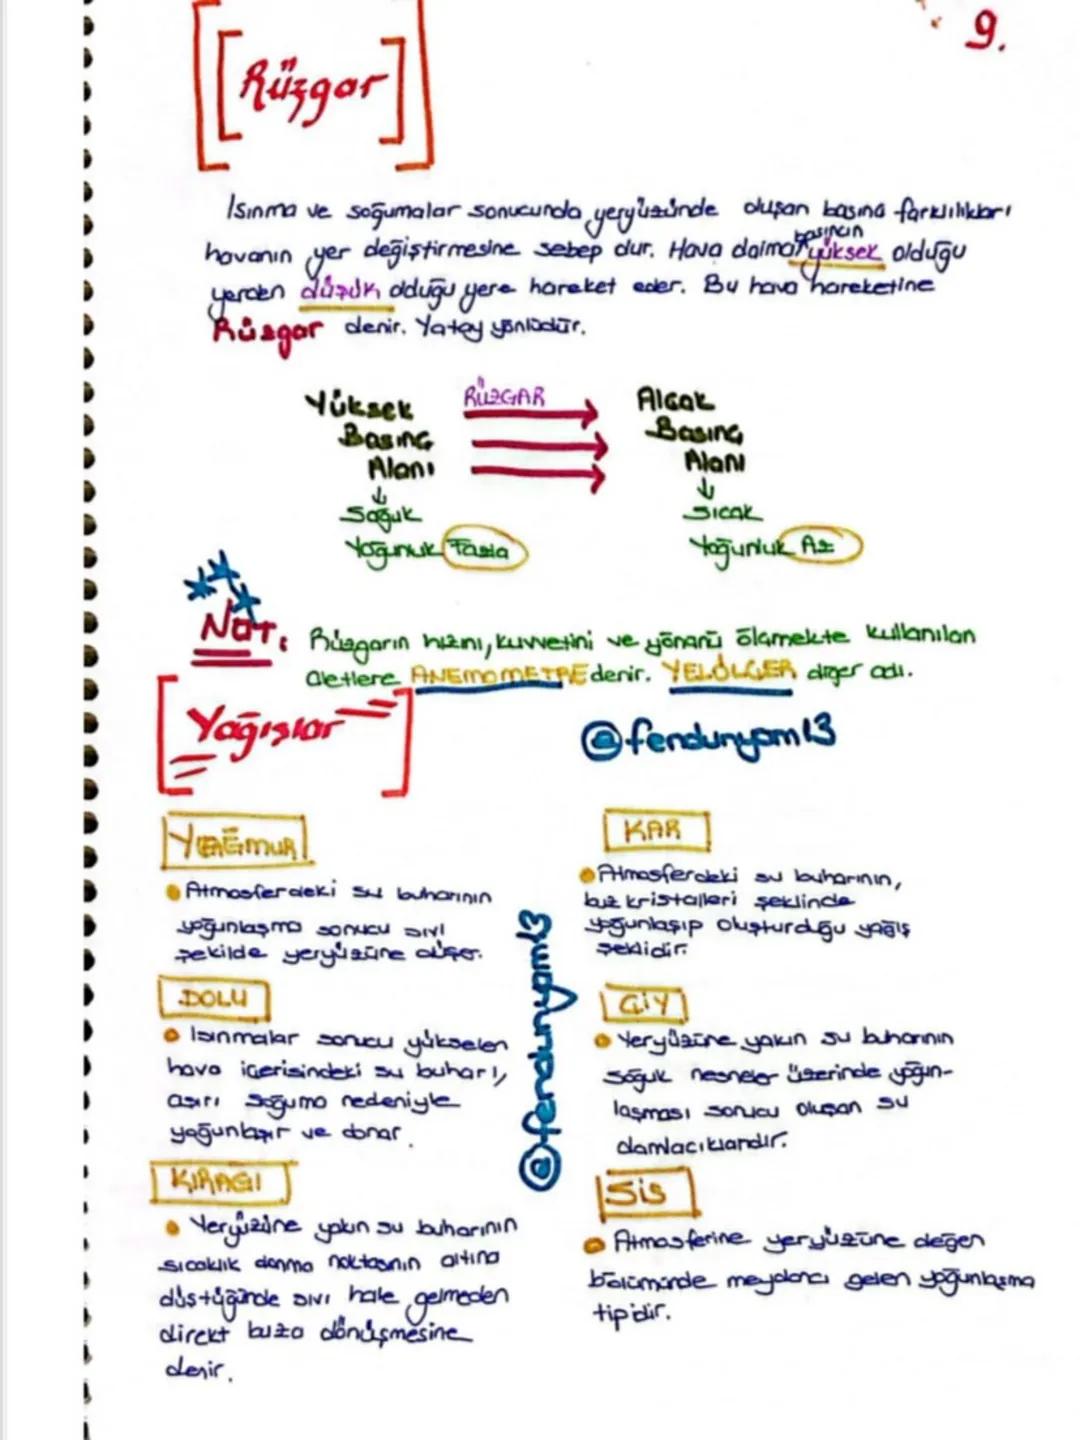 9.
Rüzgar
Isınma ve soğumalar sonucunda yeryüzünde oluşan basınç farklılıkları
havanın yer değiştirmesine sebep olur. Hava daima basıncın yüksek olduğu
yerden düşük olduğu yere hareket eder. Bu hava hareketine
Rüzgar denir. Yatay yönlüdür.
Yüksek RÜZGAR Alçak
Basınç Basınç
Alanı Alanı
↓ ↓
Soğuk Sıcak
Yoğunluk Fazla Yoğunluk Az
Not: Rüzgarın hızını, kuvvetini ve yönünü ölçmekte kullanılan
aletlere ANEMOMETRE denir. YELÖLÇER diğer adı.
Yağışlar
@fendunyam13
YAĞMUR
• Atmosferdeki su buharının
yoğunlaşma sonucu sıvı
şekilde yeryüzüne düşer.
KAR
• Atmosferdeki su buharının,
buz kristalleri şeklinde
yoğunlaşıp oluşturduğu yağış
şeklidir.
@fendunyam13
DOLU
• Isınmalar sonucu yükselen
hava içerisindeki su buharı,
aşırı soğuma nedeniyle
yoğunlaşır ve donar.
ÇİY
• Yeryüzüne yakın su buharının
soğuk nesneler üzerinde yoğun-
laşması sonucu oluşan su
damlacıklarıdır.
KIRAĞI
• Yeryüzüne yakın su buharının
sıcaklık donma noktasının altına
düştüğünde sıvı hale gelmeden
direkt buza dönüşmesine
denir.
SİS
• Atmosferine yeryüzüne değen
bölümünde meydana gelen yoğunlaşma
tipidir.